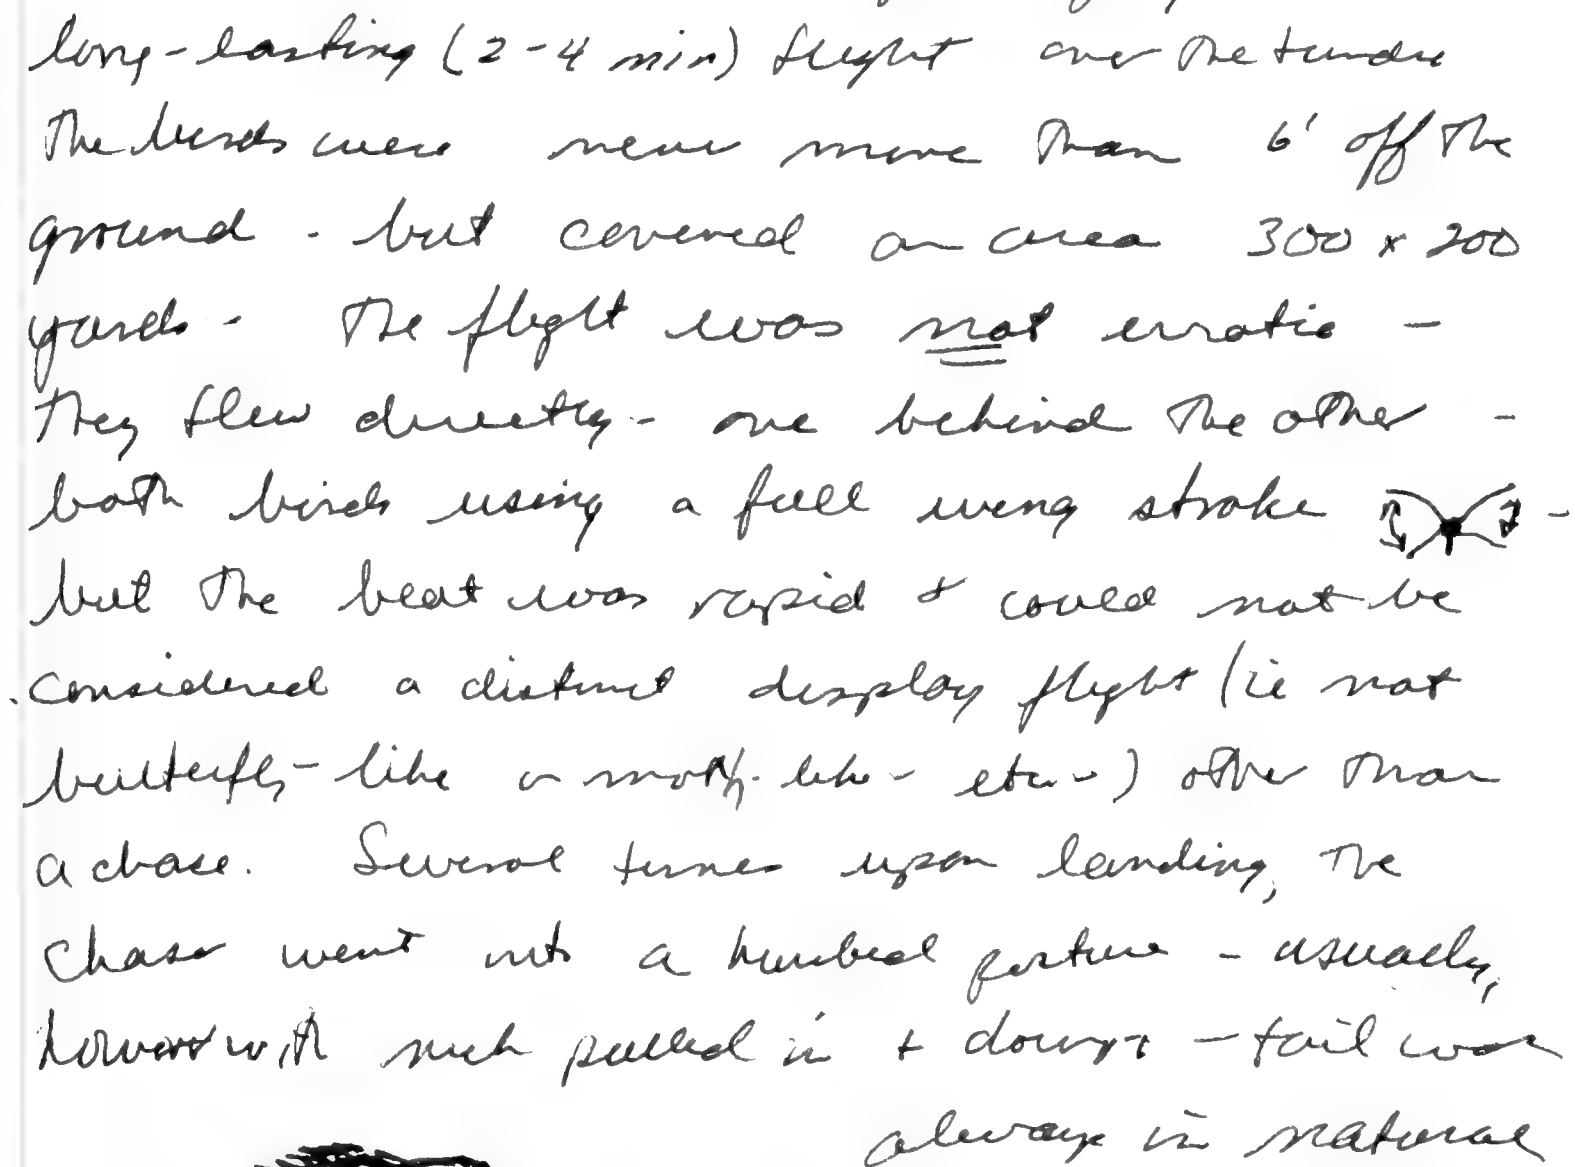 long-lasting (2-4 min) flight over the tundra
The birds were never more than 6' off the
ground - but covered an area 300 x 200
yards - The flight was not erratic -
They flew directly - one behind the other -
both birds using a full wing stroke -
but the beat was rapid + could not be
considered a distinct display flight (ie not
butterfly-like or moth-like - etc -) other than
a chase. Several times upon landing, the
chase went into a humbed posture - usually,
however with neck pulled in + down + - tail was
always in natural